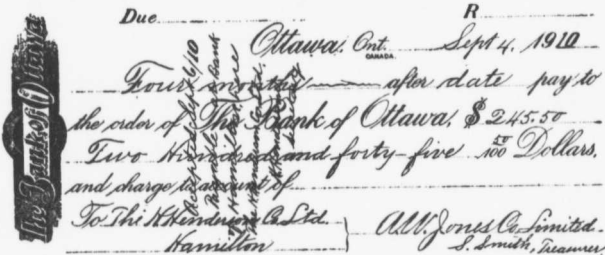 The Bank of Ottawa
Due R
Ottawa, Ont. Sept 4, 1910
CANADA.
Four months after date pay to
the order of The Bank of Ottawa, $ 245.50
Two Hundred and forty-five 50/100 Dollars,
and charge to account of
To The H Henderson Co. Ltd.
Hamilton
A.W. Jones Co. Limited.
S. Smith, Treasurer
Accepted Sept 6/10
Payable at Bank
Hamilton